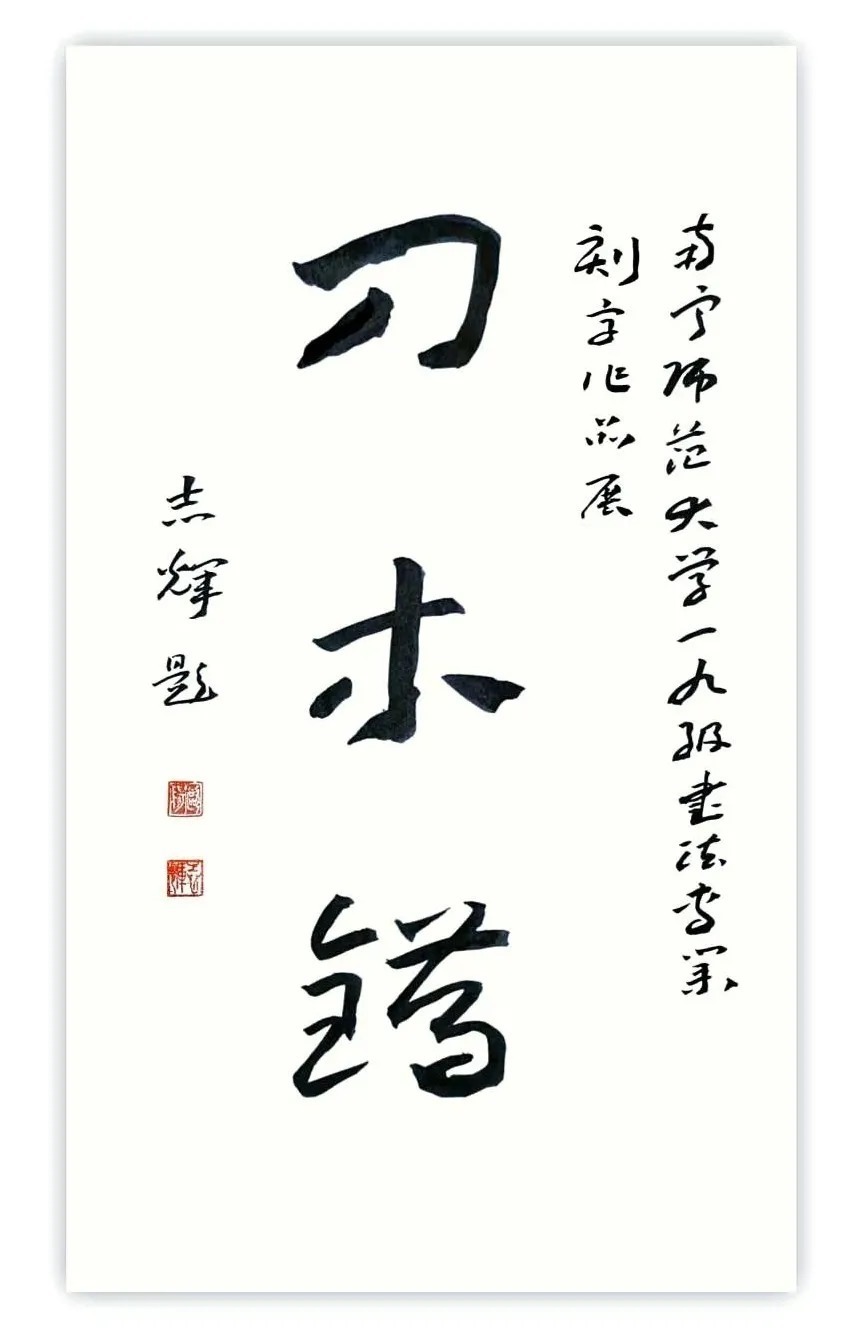 南宁师范大学一九级书法专业
刻字作品展
刀木鐫
志輝题